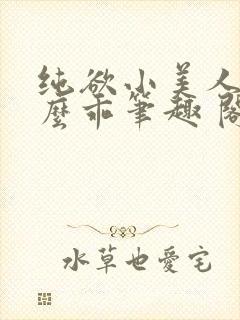 纯欲小美人
麽乖笔趣阁
水草也愛宅